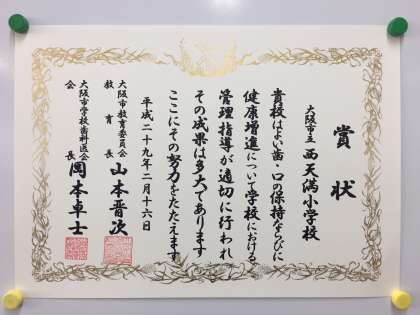 賞状
大阪市立 西天満小学校
貴校はよい歯・口の保持ならびに
健康増進について学校における
管理指導が適切に行われ
その成果は多大であります
ここにその努力をたたえます
平成二十九年二月十六日
大阪市教育委員会
教育長 山本晋次
大阪市学校歯科医会
会長 岡本卓士